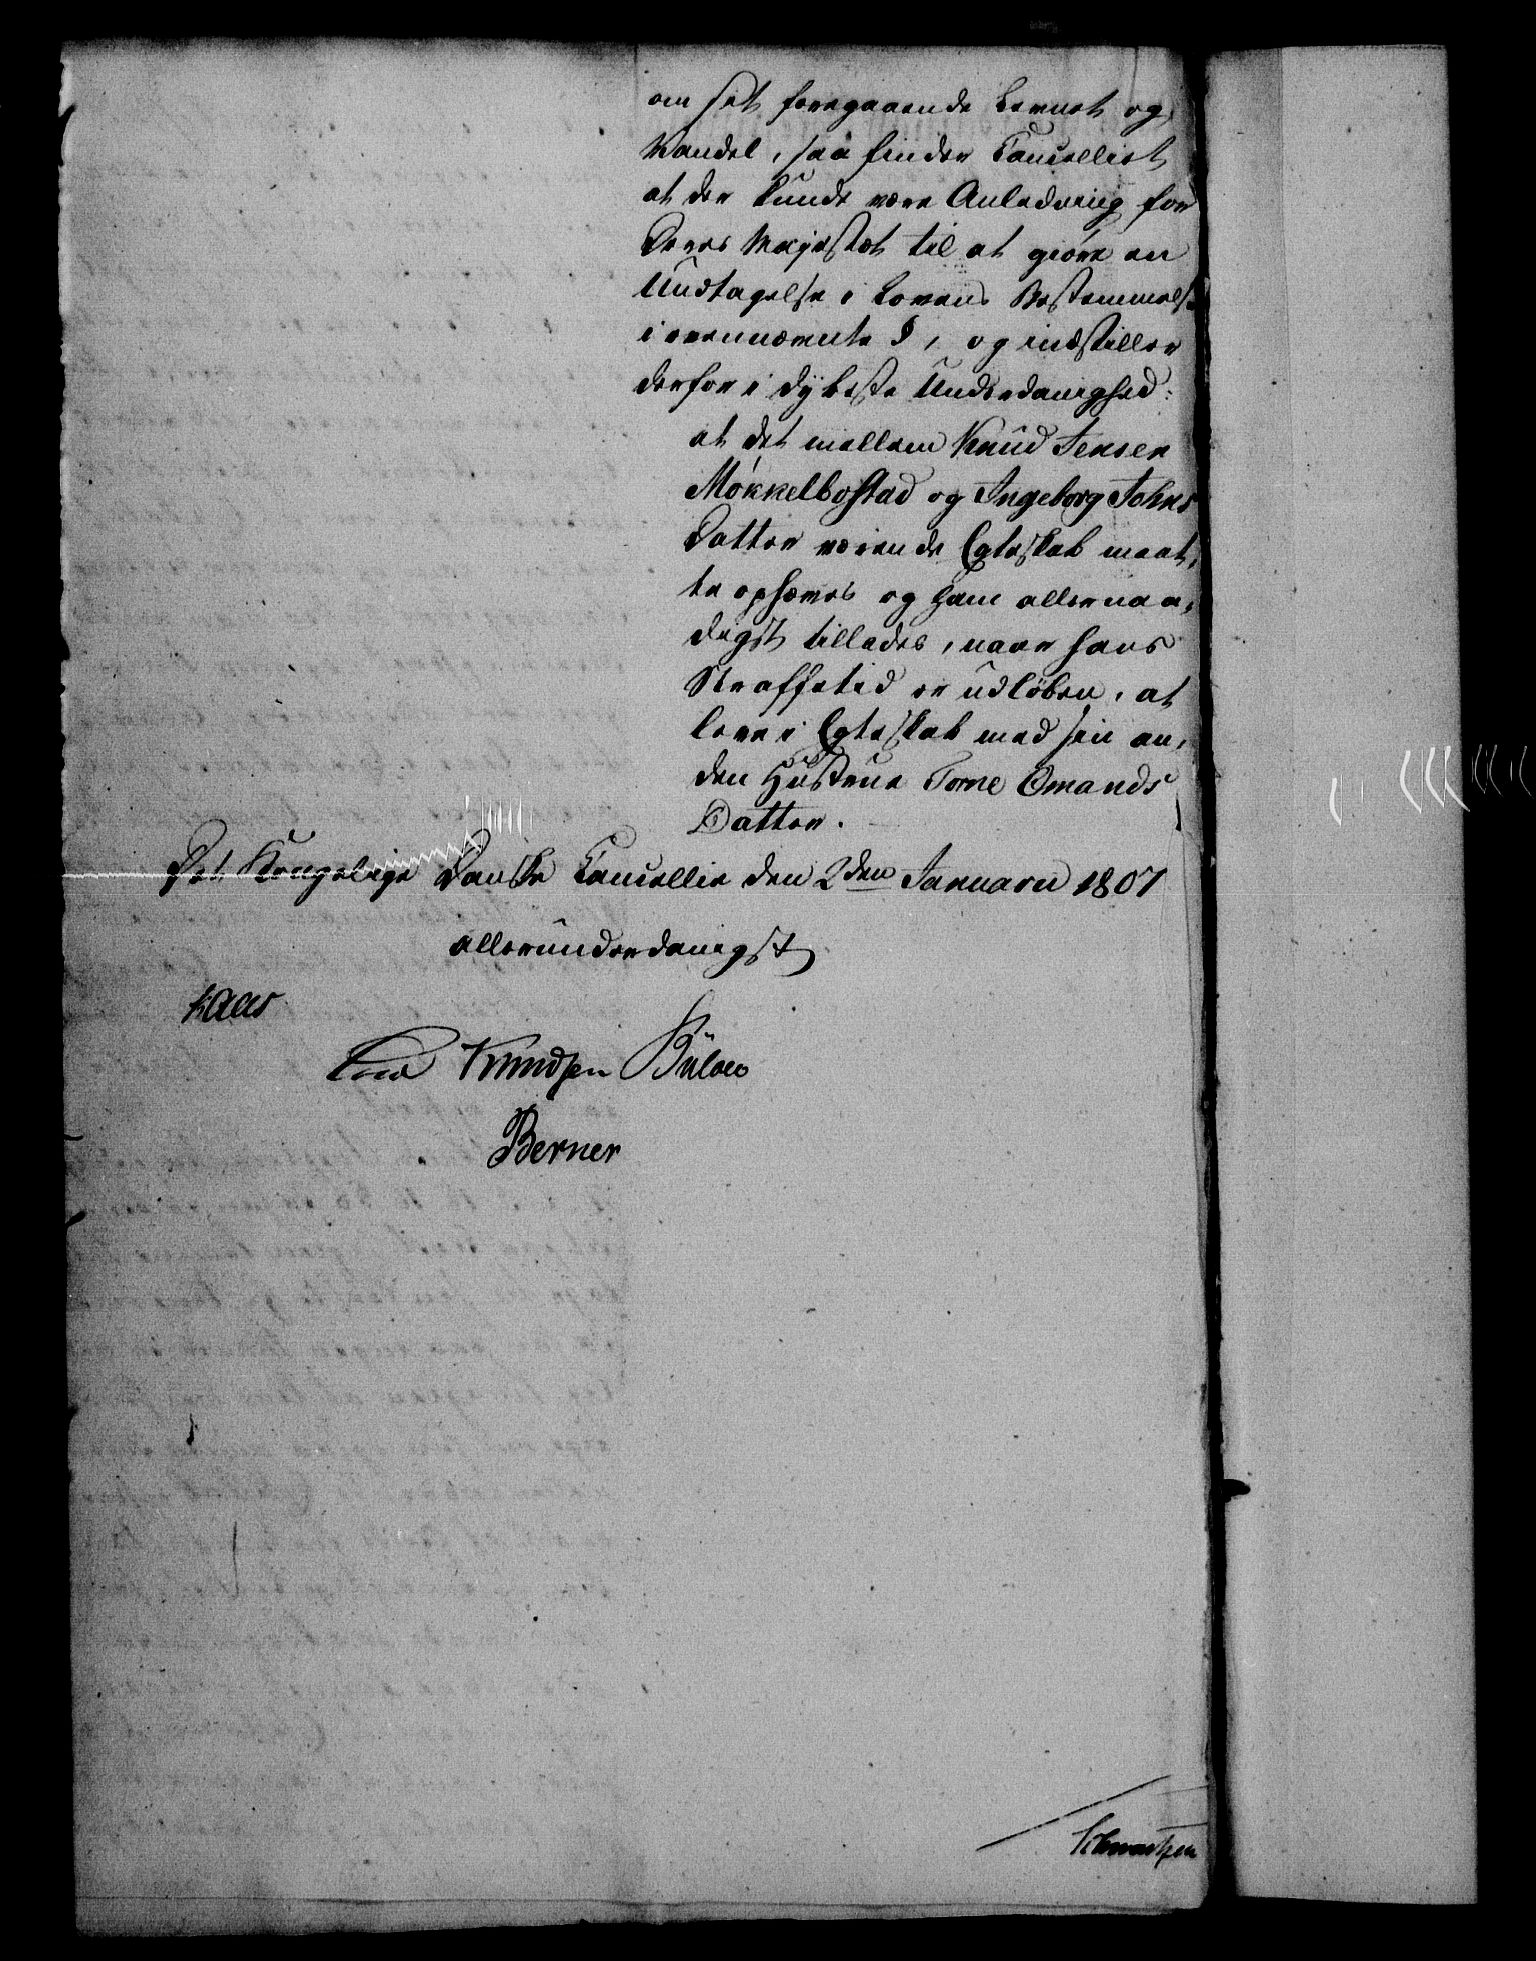 om sit foregaaende Levnet og
Vandel, saa finder Cancelliet
at der kunde være Anledning for
Deres Majestæt til at giøre en
Undtagelse i Lovens Bestemmelse
i ovennævnte §, og indstiller
derfor i dybeste Underdanighed:
at det mellem Knud Jensen
Møkkelbostad og Ingeborg Johns
Datter værende Egteskab maat,
te ophæves og ham allernaa,
digst tillades, naar hans
Straffetid er udløben, at
leve i Egteskab med sin an,
den Hustrue Torne Omands
Datter.
Det Kongelige Danske Cancellie den 2den Januarii 1807
allerunderdanigst
Kaas
Knudsen Bülow
Berner